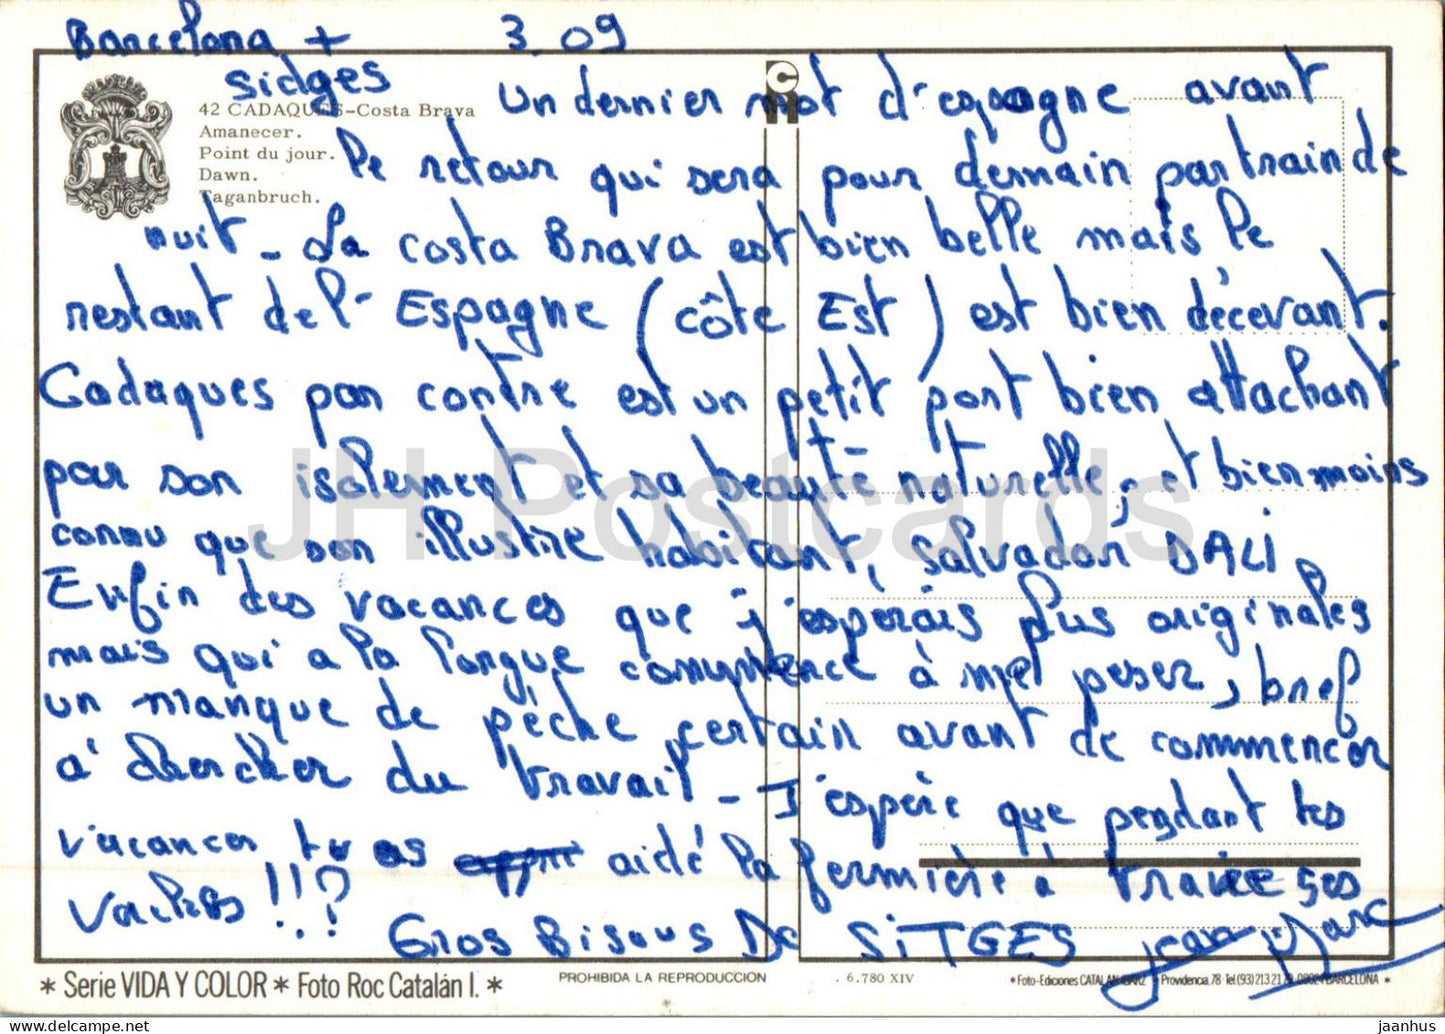 Barcelona + 3.09
Sidges
42 CADAQUES-Costa Brava
Amanecer.
Point du jour.
Dawn.
Taganbruch.
CH
Un dernier mot d'espagne avant
le retour qui sera pour demain par train de
nuit - La costa Brava est bien belle mais le
restant de l'Espagne (côte Est) est bien décevant.
Cadaques par contre est un petit port bien attachant
par son isolement et sa beauté naturelle, et bien moins
connu que son illustre habitant, Salvador DALI.
Enfin des vacances que j'esperais plus originales
mais qui a la longue commence à me peser, bref
un manque de pêche certain avant de commencer
a chercher du travail - J'espère que pendant tes
vacances tu as aidé la fermière à traire ses
vaches !!?
Gros Bisous De SITGES Jean Marc
JH Postcards
* Serie VIDA Y COLOR * Foto Roc Catalán I. *
PROHIBIDA LA REPRODUCCION
. 6.780 XIV
Foto-Ediciones Providencia, 78 BARCELONA *
jaanhus
http://delcampe.net